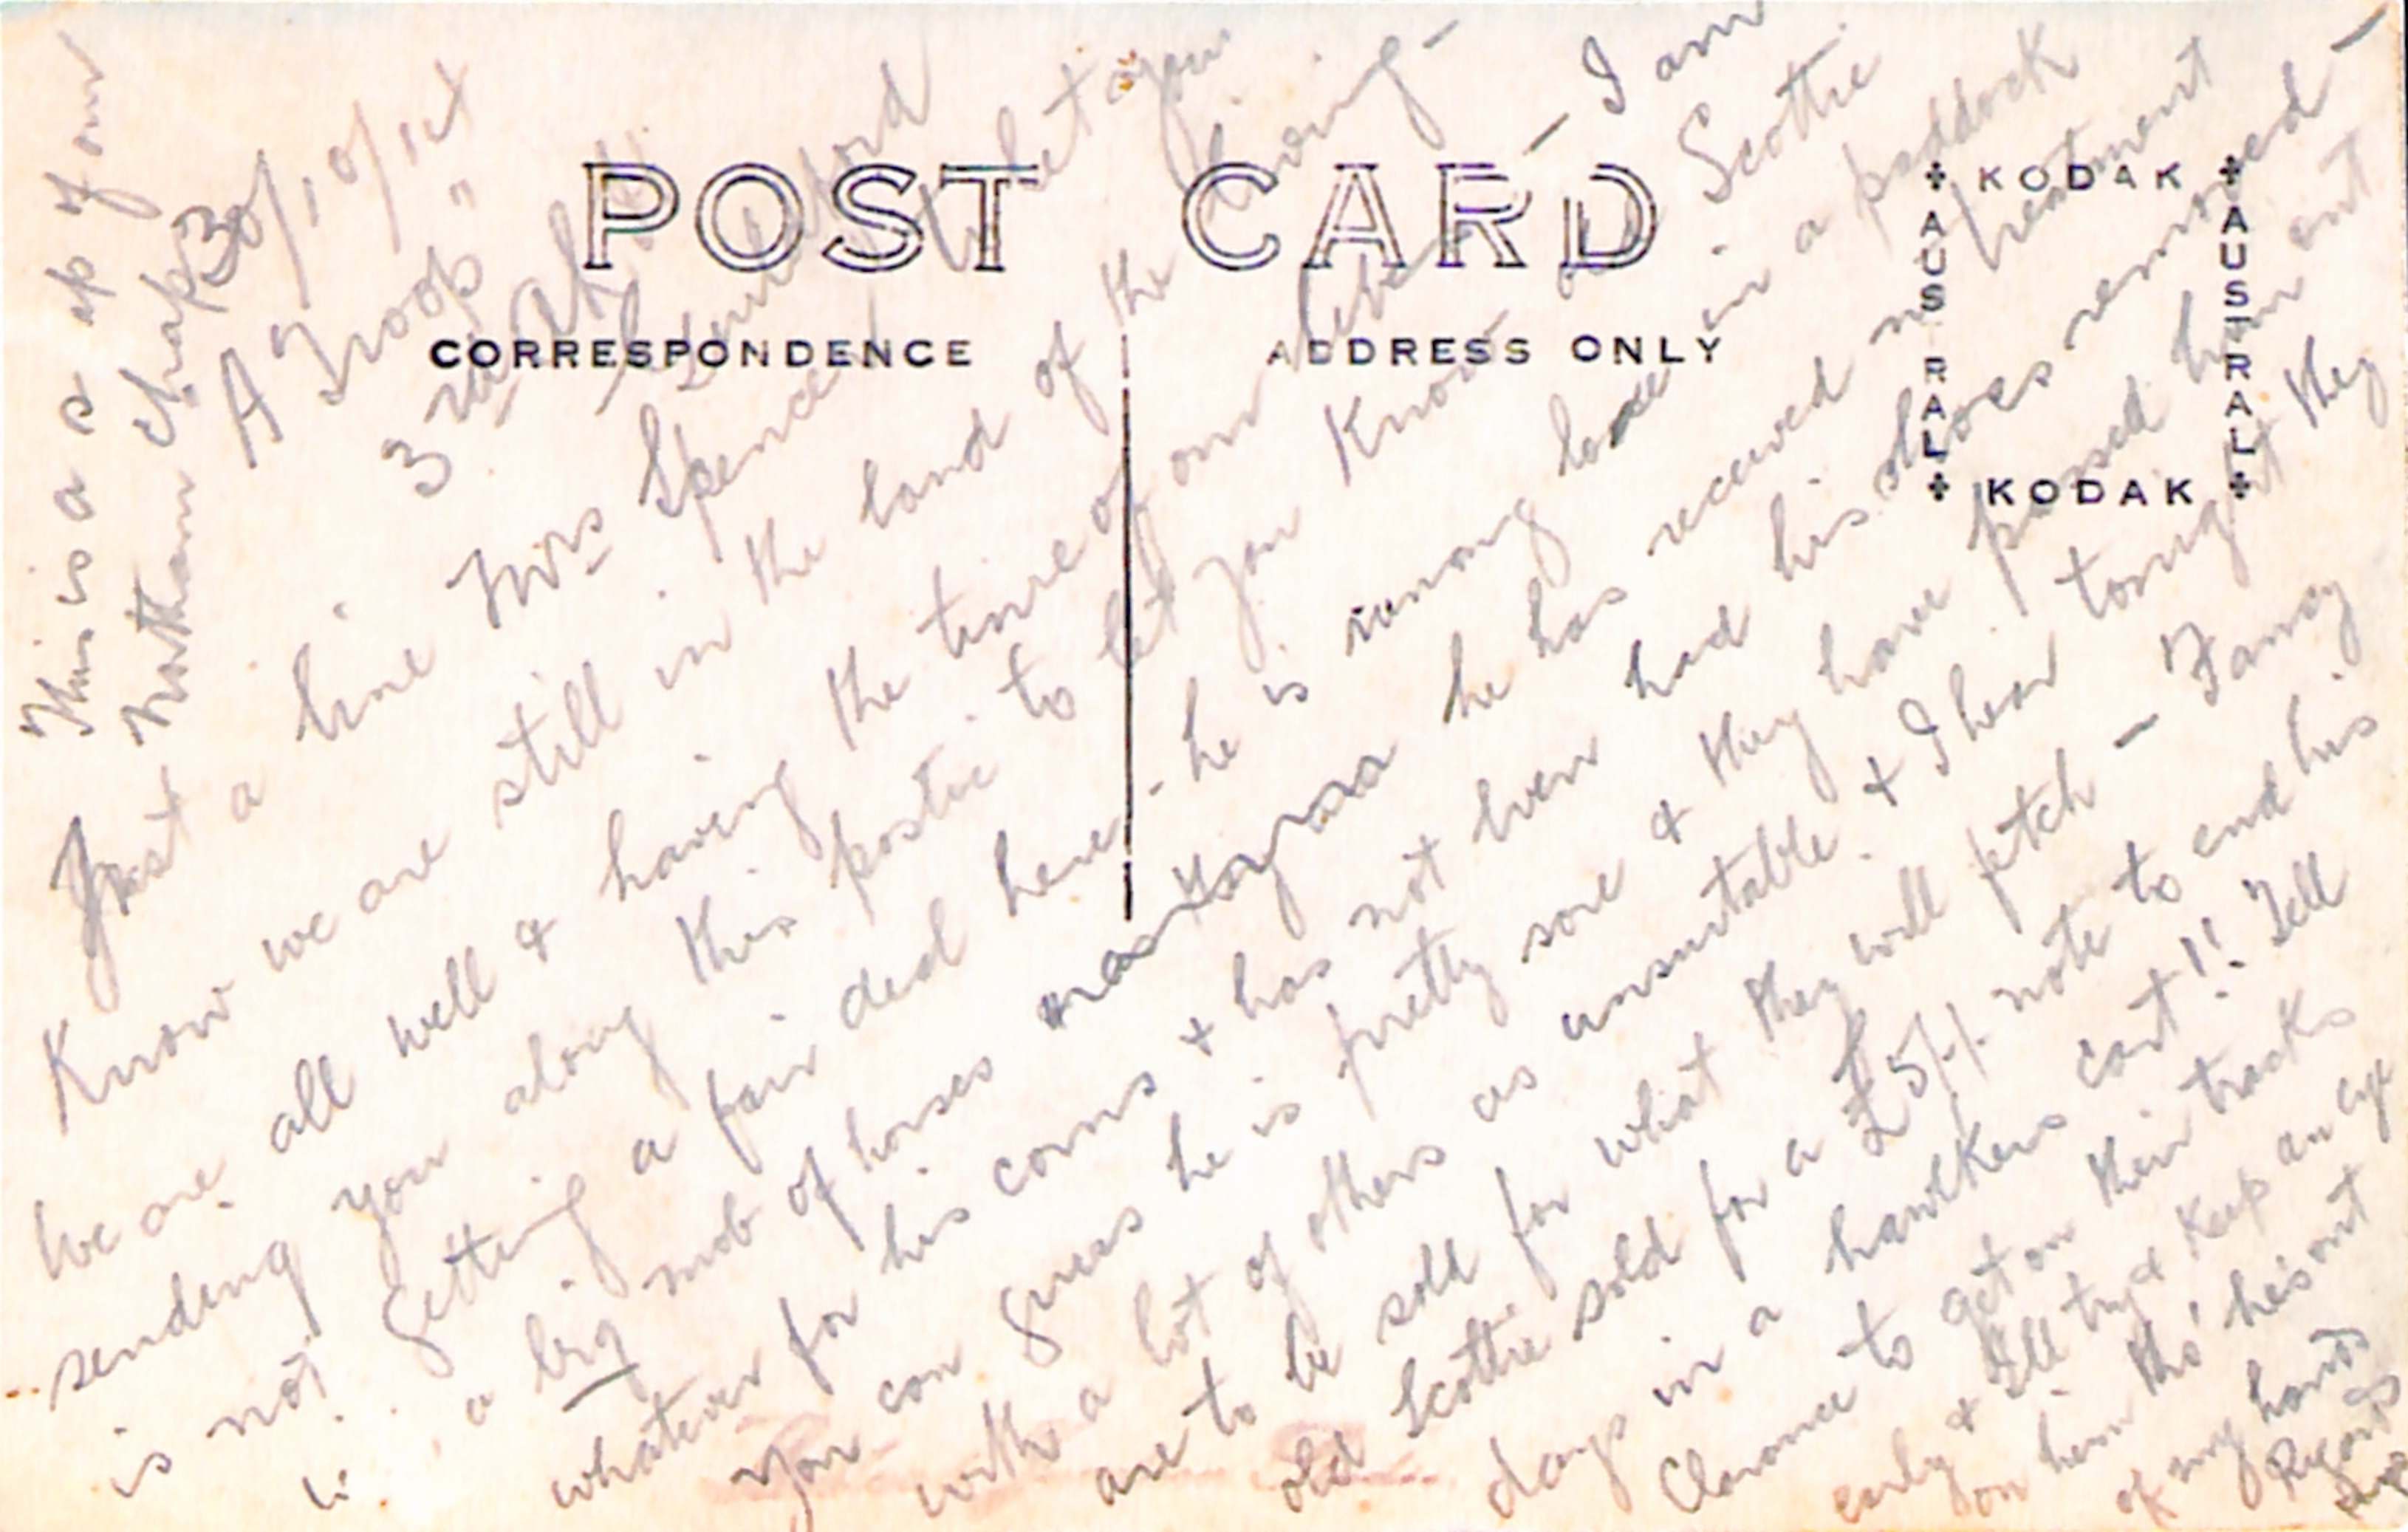 POST CARD
CORRESPONDENCE
ADDRESS ONLY
KODAK
AUSTRAL
KODAK
AUSTRAL
This is a of our
Northam chaps
30/10/14
A Troop
3
Just a line Mrs Spencer to let you
know we are still in the land of the living –
We are all well & having the time of our lives – I am
sending you along this postie to let you know Scottie
is not getting a fair deal here – he is in a paddock
a big mob of horses he has received no treatment
whatever for his corns & has not even had his shoes removed –
You can guess he is pretty sore & they have passed him out
with a lot of others as unsuitable & I hear tonight they
are to be sold for what they will fetch – Fancy
old Scottie sold for a £5/-/- note to end his
days in a hawkers cart!! Tell
Clarence to get on their tracks
early & I'll try & keep an eye
on him tho' he's out
of my hands
Regards